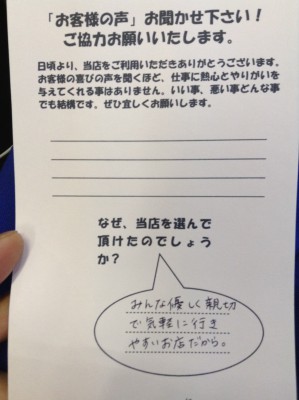 「お客様の声」お聞かせ下さい！
ご協力お願いいたします。
日頃より、当店をご利用いただきありがとうございます。
お客様の喜びの声を聞くほど、仕事に熱心とやりがいを
与えてくれる事はありません。いい事、悪い事どんな事
でも結構です。ぜひ宜しくお願いします。
なぜ、当店を選んで
頂けたのでしょう
か？
みんな優しく親切
で気軽に行き
やすいお店だから。